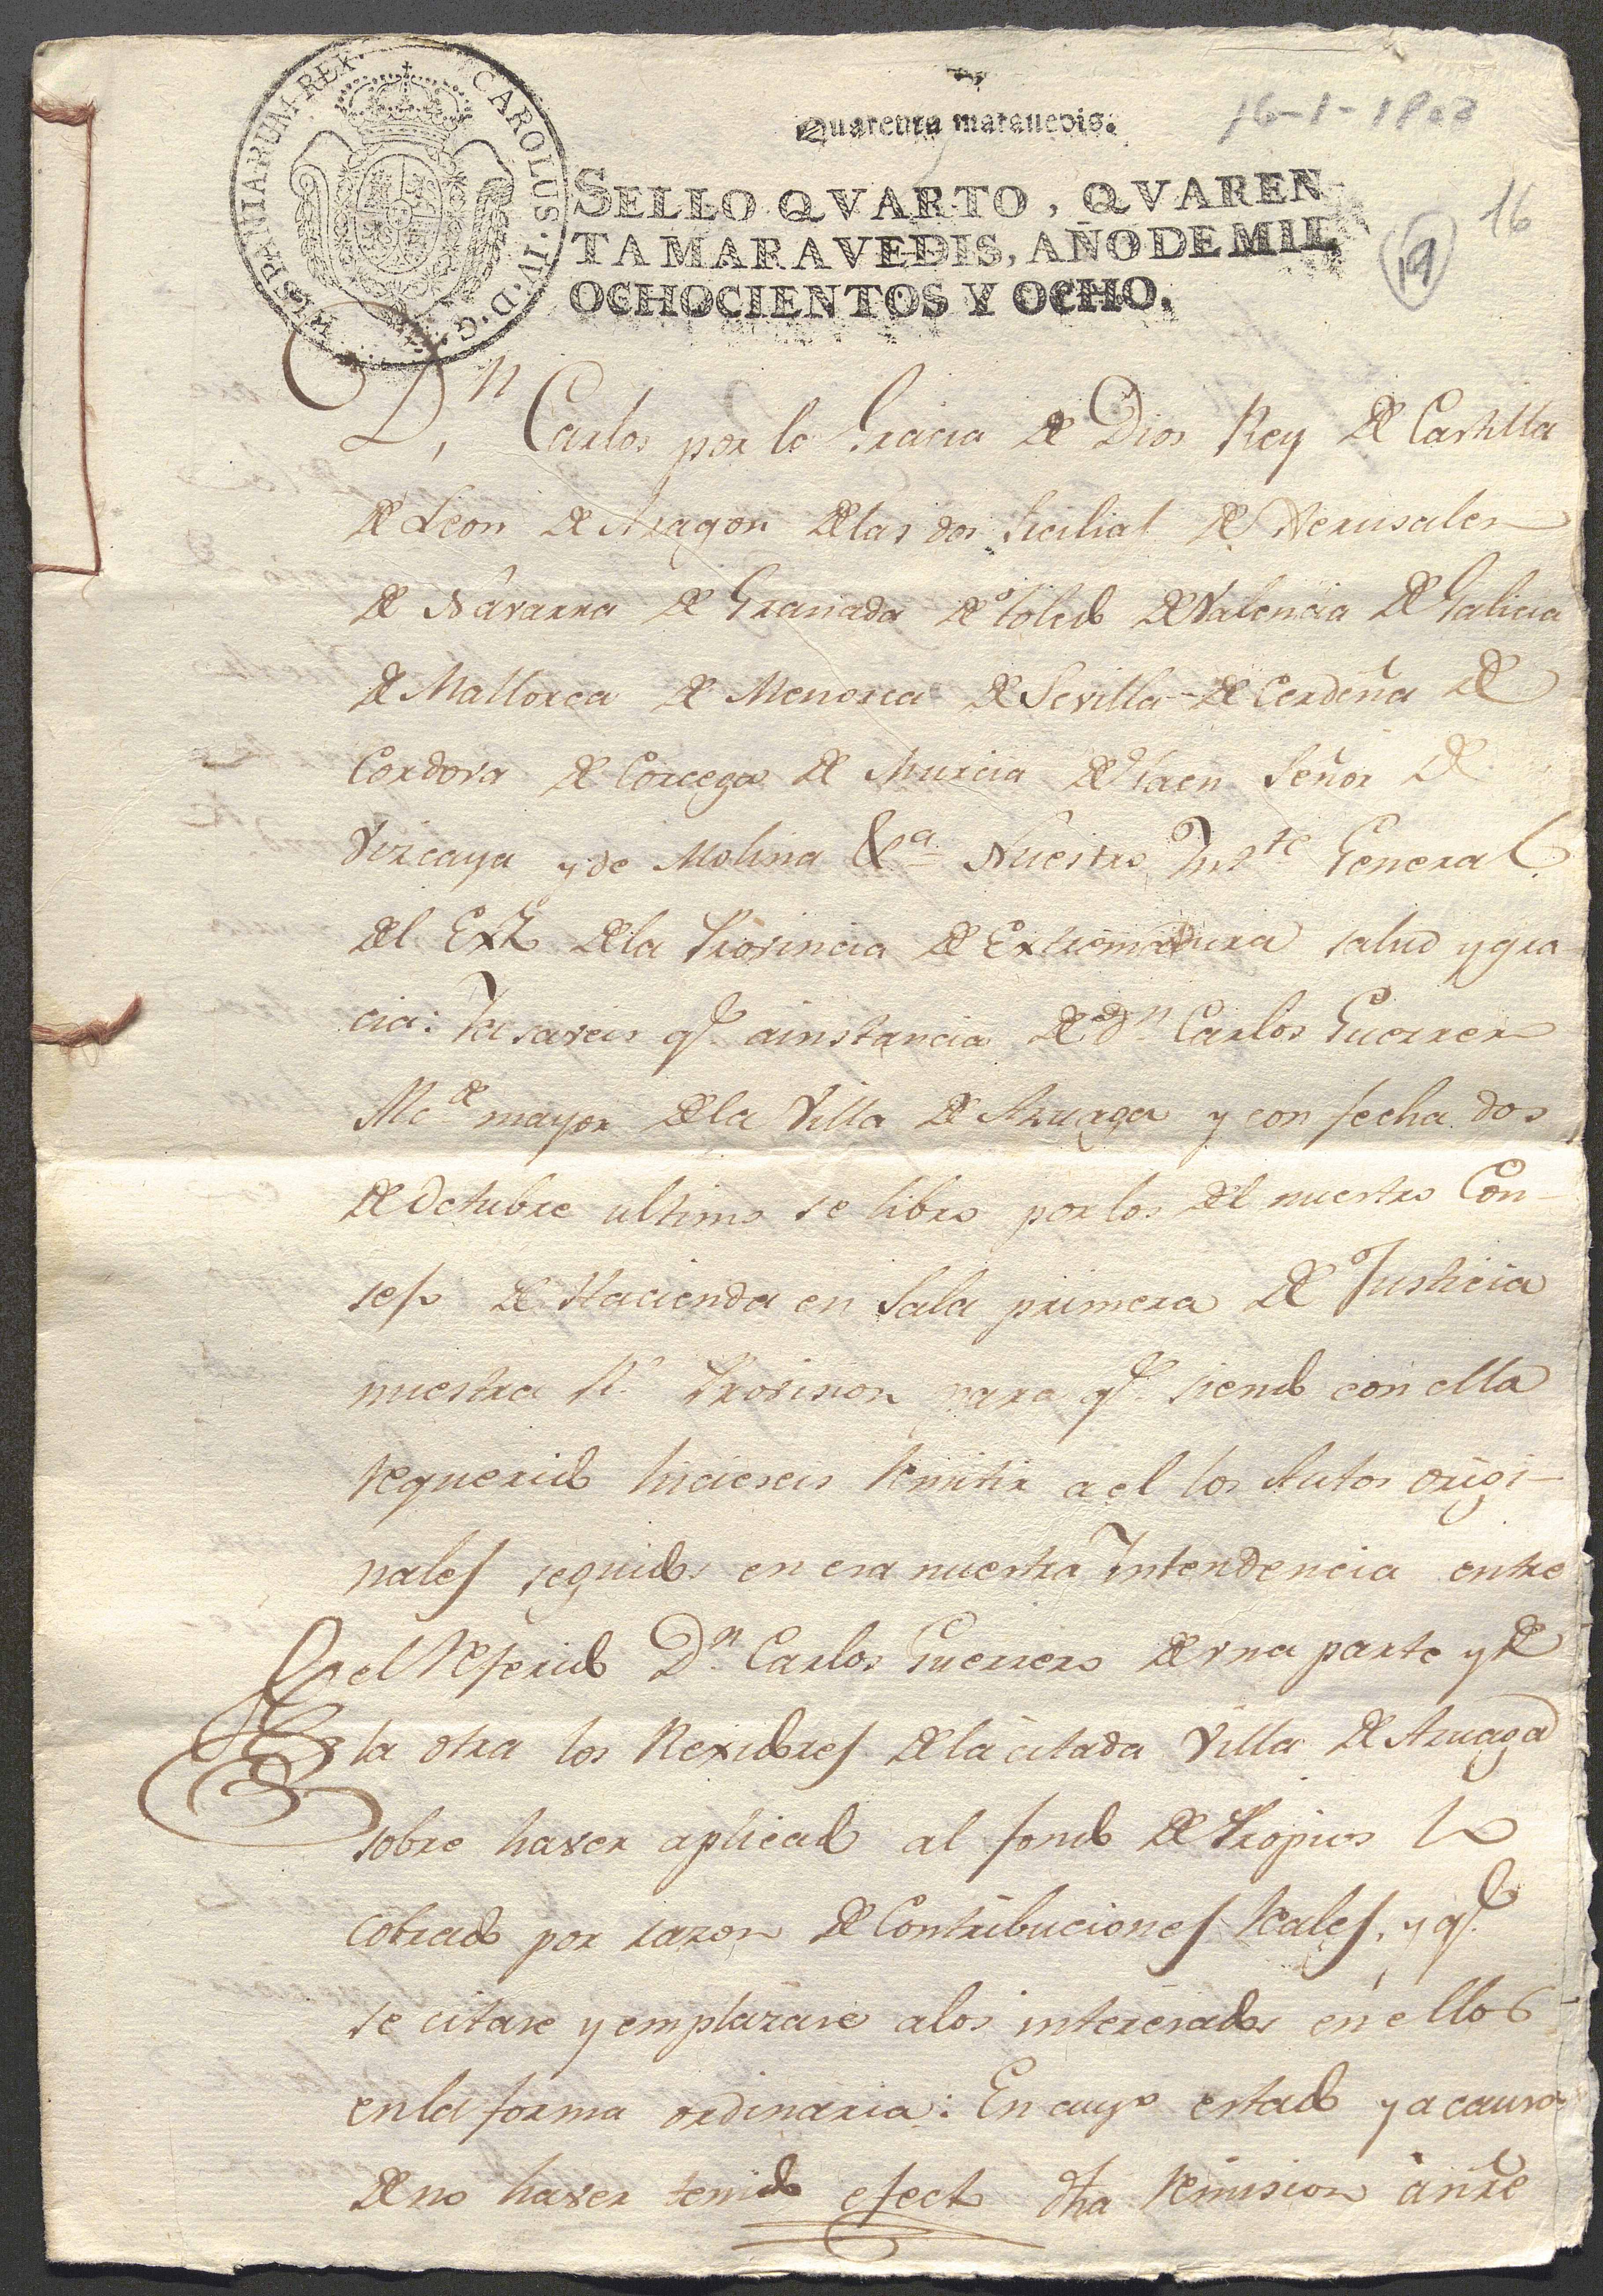 HISPANIARUM REX CAROLUS. IV. D. G.
Quarenta maravedis.
16-1-1808
SELLO QVARTO, QVAREN
TA MARAVEDIS, AÑO DE MIL
OCHOCIENTOS Y OCHO.
16
19
Dn Carlos por la Gracia de Dios Rey de Castilla
de Leon de Aragon de las dos Sicilias de Jerusalen
de Navarra de Granada de Toledo de Valencia de Galicia
de Mallorca de Menorca de Sevilla de Cerdeña de
Cordova de Corcega de Murcia de Jaen Señor de
Vizcaya y de Molina &a Nuestro Intte General
del Exto de la Provincia de Extremadura salud y gra
cia: Ya saveis qe a instancia de dn Carlos Guerrero
Alcde mayor de la Villa de Azuaga y con fecha dos
de Octubre ultimo se libro por los del nuestro Con-
sejo de Hacienda en Sala primera de Justicia
nuestra Rl Provision para qe siendo con ella
requerido hicieseis remitir a el los Autos origi-
nales seguidos en esa nuestra Intendencia entre
el referido Dn Carlos Guerrero de vna parte y de
la otra los Rexidores de la citada Villa de Azuaga
sobre haver aplicado al fondo de Propios lo
cobrado por razon de Contribuciones reales, y qe
se citase y emplazase a los interesados en ellos
en la forma ordinaria: En cuyo estado y a causa
de no haver tenido efecto dha remision ante